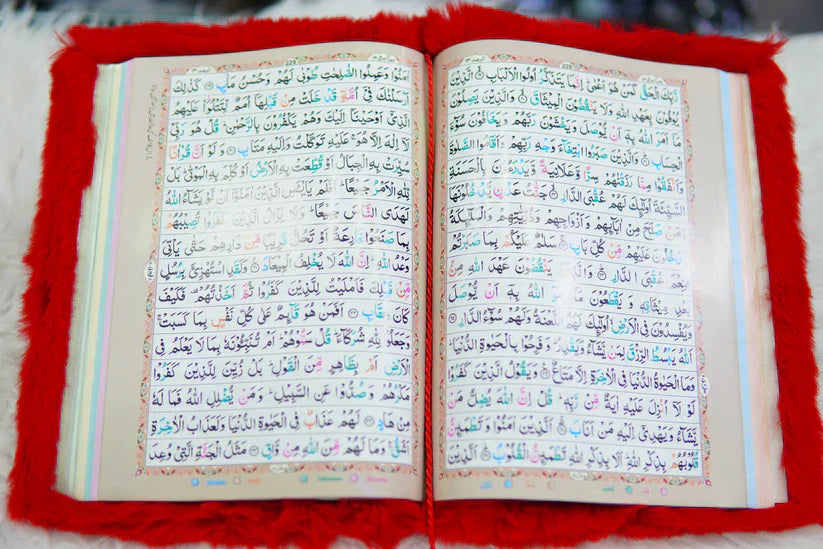 رَبِّكَ الْحَقُّ كَمَنْ هُوَ اَعْمٰىؕ اِنَّمَا يَتَذَكَّرُ اُولُوا الْاَلْبَابِ ۙ الَّذِيْنَ
يُوْفُوْنَ بِعَهْدِ اللّٰهِ وَلَا يَنْقُضُوْنَ الْمِيْثَاقَ ۙ وَالَّذِيْنَ يَصِلُوْنَ
مَاۤ اَمَرَ اللّٰهُ بِهٖۤ اَنْ يُّوْصَلَ وَيَخْشَوْنَ رَبَّهُمْ وَيَخَافُوْنَ سُوْٓءَ
الْحِسَابِ ؕ وَالَّذِيْنَ صَبَرُوا ابْتِغَآءَ وَجْهِ رَبِّهِمْ وَاَقَامُوا الصَّلٰوةَ
وَاَنْفَقُوْا مِمَّا رَزَقْنٰهُمْ سِرًّا وَّعَلَانِيَةً وَّيَدْرَءُوْنَ بِالْحَسَنَةِ
السَّيِّئَةَ اُولٰٓئِكَ لَهُمْ عُقْبَى الدَّارِ ۙ جَنّٰتُ عَدْنٍ يَّدْخُلُوْنَهَا
وَمَنْ صَلَحَ مِنْ اٰبَآئِهِمْ وَاَزْوَاجِهِمْ وَذُرِّيّٰتِهِمْ وَالْمَلٰٓئِكَةُ
يَدْخُلُوْنَ عَلَيْهِمْ مِّنْ كُلِّ بَابٍ ۚ سَلٰمٌ عَلَيْكُمْ بِمَا صَبَرْتُمْ
فَنِعْمَ عُقْبَى الدَّارِ ؕ وَالَّذِيْنَ يَنْقُضُوْنَ عَهْدَ اللّٰهِ مِنْۢ
بَعْدِ مِيْثَاقِهٖ وَيَقْطَعُوْنَ مَاۤ اَمَرَ اللّٰهُ بِهٖۤ اَنْ يُّوْصَلَ
وَيُفْسِدُوْنَ فِي الْاَرْضِ ۙ اُولٰٓئِكَ لَهُمُ اللَّعْنَةُ وَلَهُمْ سُوْٓءُ الدَّارِ
اَللّٰهُ يَبْسُطُ الرِّزْقَ لِمَنْ يَّشَآءُ وَيَقْدِرُ ؕ وَفَرِحُوْا بِالْحَيٰوةِ الدُّنْيَا ؕ
وَمَا الْحَيٰوةُ الدُّنْيَا فِي الْاٰخِرَةِ اِلَّا مَتَاعٌ وَيَقُوْلُ الَّذِيْنَ كَفَرُوْا
لَوْلَاۤ اُنْزِلَ عَلَيْهِ اٰيَةٌ مِّنْ رَّبِّهٖ ؕ قُلْ اِنَّ اللّٰهَ يُضِلُّ مَنْ
يَّشَآءُ وَيَهْدِيْۤ اِلَيْهِ مَنْ اَنَابَ اَلَّذِيْنَ اٰمَنُوْا وَتَطْمَئِنُّ
قُلُوْبُهُمْ بِذِكْرِ اللّٰهِ ؕ اَلَا بِذِكْرِ اللّٰهِ تَطْمَئِنُّ الْقُلُوْبُ ؕ اَلَّذِيْنَ
اٰمَنُوْا وَعَمِلُوا الصّٰلِحٰتِ طُوْبٰى لَهُمْ وَحُسْنُ مَاٰبٍ كَذٰلِكَ
اَرْسَلْنٰكَ فِيْۤ اُمَّةٍ قَدْ خَلَتْ مِنْ قَبْلِهَاۤ اُمَمٌ لِّتَتْلُوَا۠ عَلَيْهِمُ
الَّذِيْۤ اَوْحَيْنَاۤ اِلَيْكَ وَهُمْ يَكْفُرُوْنَ بِالرَّحْمٰنِ ؕ قُلْ هُوَ رَبِّيْ
لَاۤ اِلٰهَ اِلَّا هُوَ ۚ عَلَيْهِ تَوَكَّلْتُ وَاِلَيْهِ مَتَابِ وَلَوْ اَنَّ قُرْاٰنًا
سُيِّرَتْ بِهِ الْجِبَالُ اَوْ قُطِّعَتْ بِهِ الْاَرْضُ اَوْ كُلِّمَ بِهِ الْمَوْتٰى ؕ بَلْ
لِّلّٰهِ الْاَمْرُ جَمِيْعًا ؕ اَفَلَمْ يَايْـَٔسِ الَّذِيْنَ اٰمَنُوْۤا اَنْ لَّوْ يَشَآءُ اللّٰهُ
لَهَدَى النَّاسَ جَمِيْعًا ؕ وَلَا يَزَالُ الَّذِيْنَ كَفَرُوْا تُصِيْبُهُمْ
بِمَا صَنَعُوْا قَارِعَةٌ اَوْ تَحُلُّ قَرِيْبًا مِّنْ دَارِهِمْ حَتّٰى يَاْتِيَ
وَعْدُ اللّٰهِ ؕ اِنَّ اللّٰهَ لَا يُخْلِفُ الْمِيْعَادَ وَلَقَدِ اسْتُهْزِئَ بِرُسُلٍ
مِّنْ قَبْلِكَ فَاَمْلَيْتُ لِلَّذِيْنَ كَفَرُوْا ثُمَّ اَخَذْتُهُمْ فَكَيْفَ
كَانَ عِقَابِ اَفَمَنْ هُوَ قَآئِمٌ عَلٰى كُلِّ نَفْسٍۭ بِمَا كَسَبَتْ ۚ
وَجَعَلُوْا لِلّٰهِ شُرَكَآءَ ؕ قُلْ سَمُّوْهُمْ ؕ اَمْ تُنَبِّـُٔوْنَهٗ بِمَا لَا يَعْلَمُ فِي
الْاَرْضِ اَمْ بِظَاهِرٍ مِّنَ الْقَوْلِ ؕ بَلْ زُيِّنَ لِلَّذِيْنَ كَفَرُوْا
مَكْرُهُمْ وَصُدُّوْا عَنِ السَّبِيْلِ ؕ وَمَنْ يُّضْلِلِ اللّٰهُ فَمَا لَهٗ
مِنْ هَادٍ لَهُمْ عَذَابٌ فِي الْحَيٰوةِ الدُّنْيَا وَلَعَذَابُ الْاٰخِرَةِ
اَشَقُّ ۚ وَمَا لَهُمْ مِّنَ اللّٰهِ مِنْ وَّاقٍ مَثَلُ الْجَنَّةِ الَّتِيْ وُعِدَ